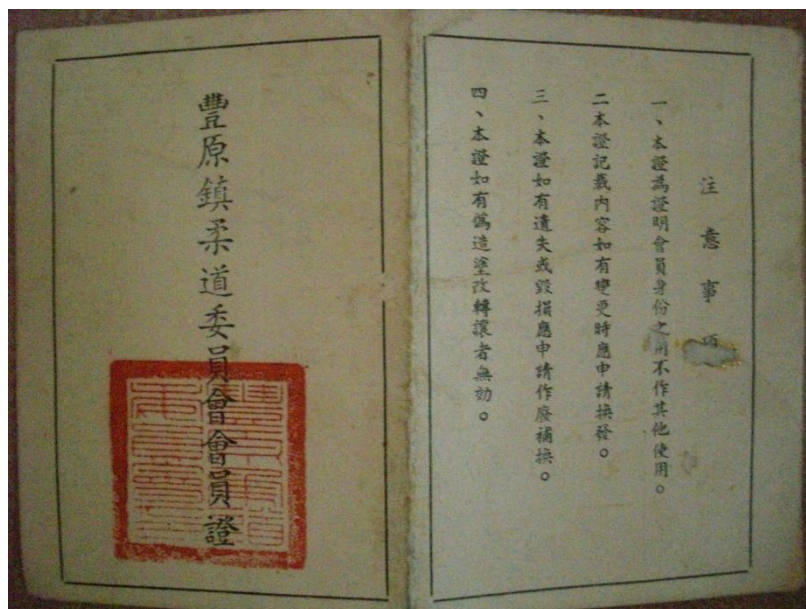 注意事項
一、本證為證明會員身份之用不作其他使用。
二本證記載內容如有變更時應申請換發。
三、本證如有遺失或毀損應申請作廢補換。
四、本證如有偽造塗改轉讓者無効。
豐原鎮柔道委員會會員證